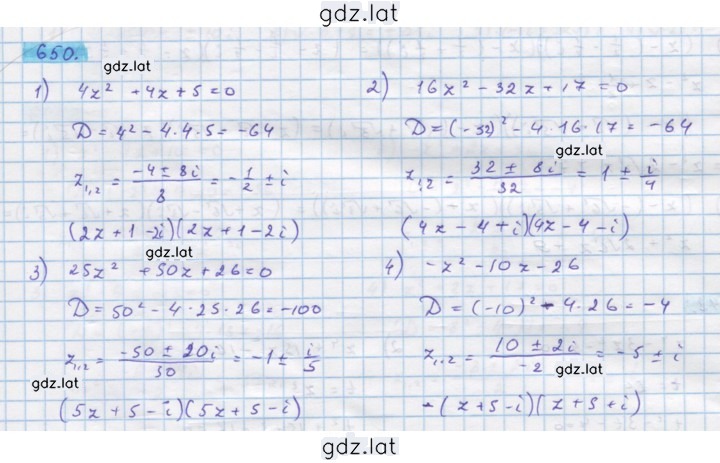 gdz.lat
650.
gdz.lat
1) 4z² + 4z + 5 = 0
D = 4² - 4·4·5 = -64
z₁,₂ = (-4 ± 8i)/8 = -1/2 ± i
(2z + 1 - 2i)(2z + 1 - 2i)
gdz.lat
2) 16z² - 32z + 17 = 0
D = (-32)² - 4·16·17 = -64
gdz.lat
z₁,₂ = (32 ± 8i)/32 = 1 ± i/4
(4z - 4 + i)(4z - 4 - i)
3) 25z² + 50z + 26 = 0
D = 50² - 4·25·26 = -100
z₁,₂ = (-50 ± 20i)/50 = -1 ± i/5
gdz.lat
(5z + 5 - i)(5z + 5 - i)
4) -z² - 10z - 26
D = (-10)² - 4·26 = -4
z₁,₂ = (10 ± 2i)/-2 = -5 ± i
gdz.lat
-(z + 5 - i)(z + 5 + i)
gdz.lat